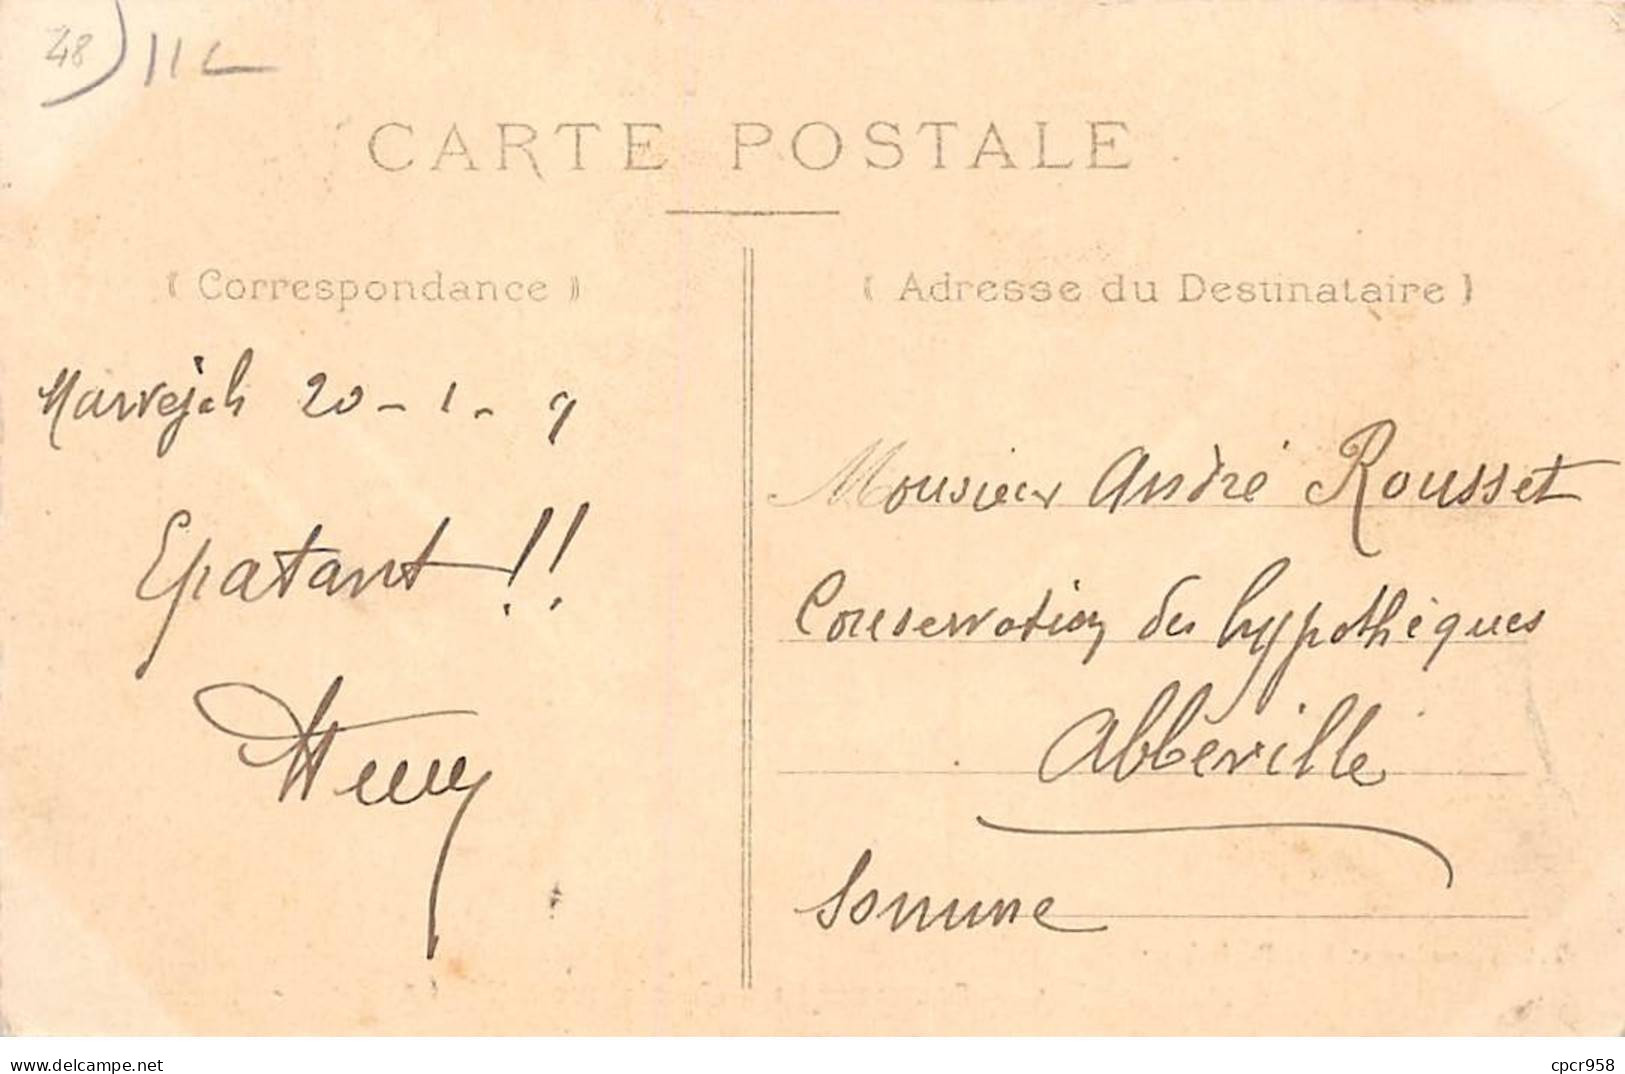 48
CARTE POSTALE
( Correspondance )
Marvejols 20 - 1 - 9
Epatant !!
( Adresse du Destinataire )
Monsieur André Rousset
Conservation des hypothèques
Abbeville
Somme
www.delcampe.net
cpcr958